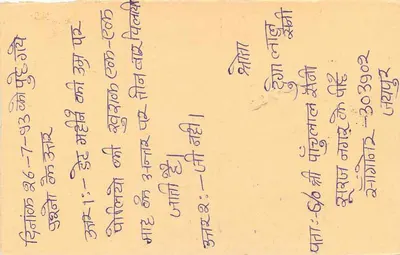 दिनांक २६-7-93 को पुछे गये
प्रश्नो के उत्तर
उत्तर १:- डेढ महीने की उम्र पर
पोलियो की खुराक एक-एक
माह के अन्तर पर तीन बार पिलायी
जाती है।
उत्तर २:- जी नही।
श्रोता
दुर्गा लाल सैनी
पता:- C/o श्री पाँचुलाल सैनी
सूरज नगर के पीछे
सांगानेर-303902
जयपुर